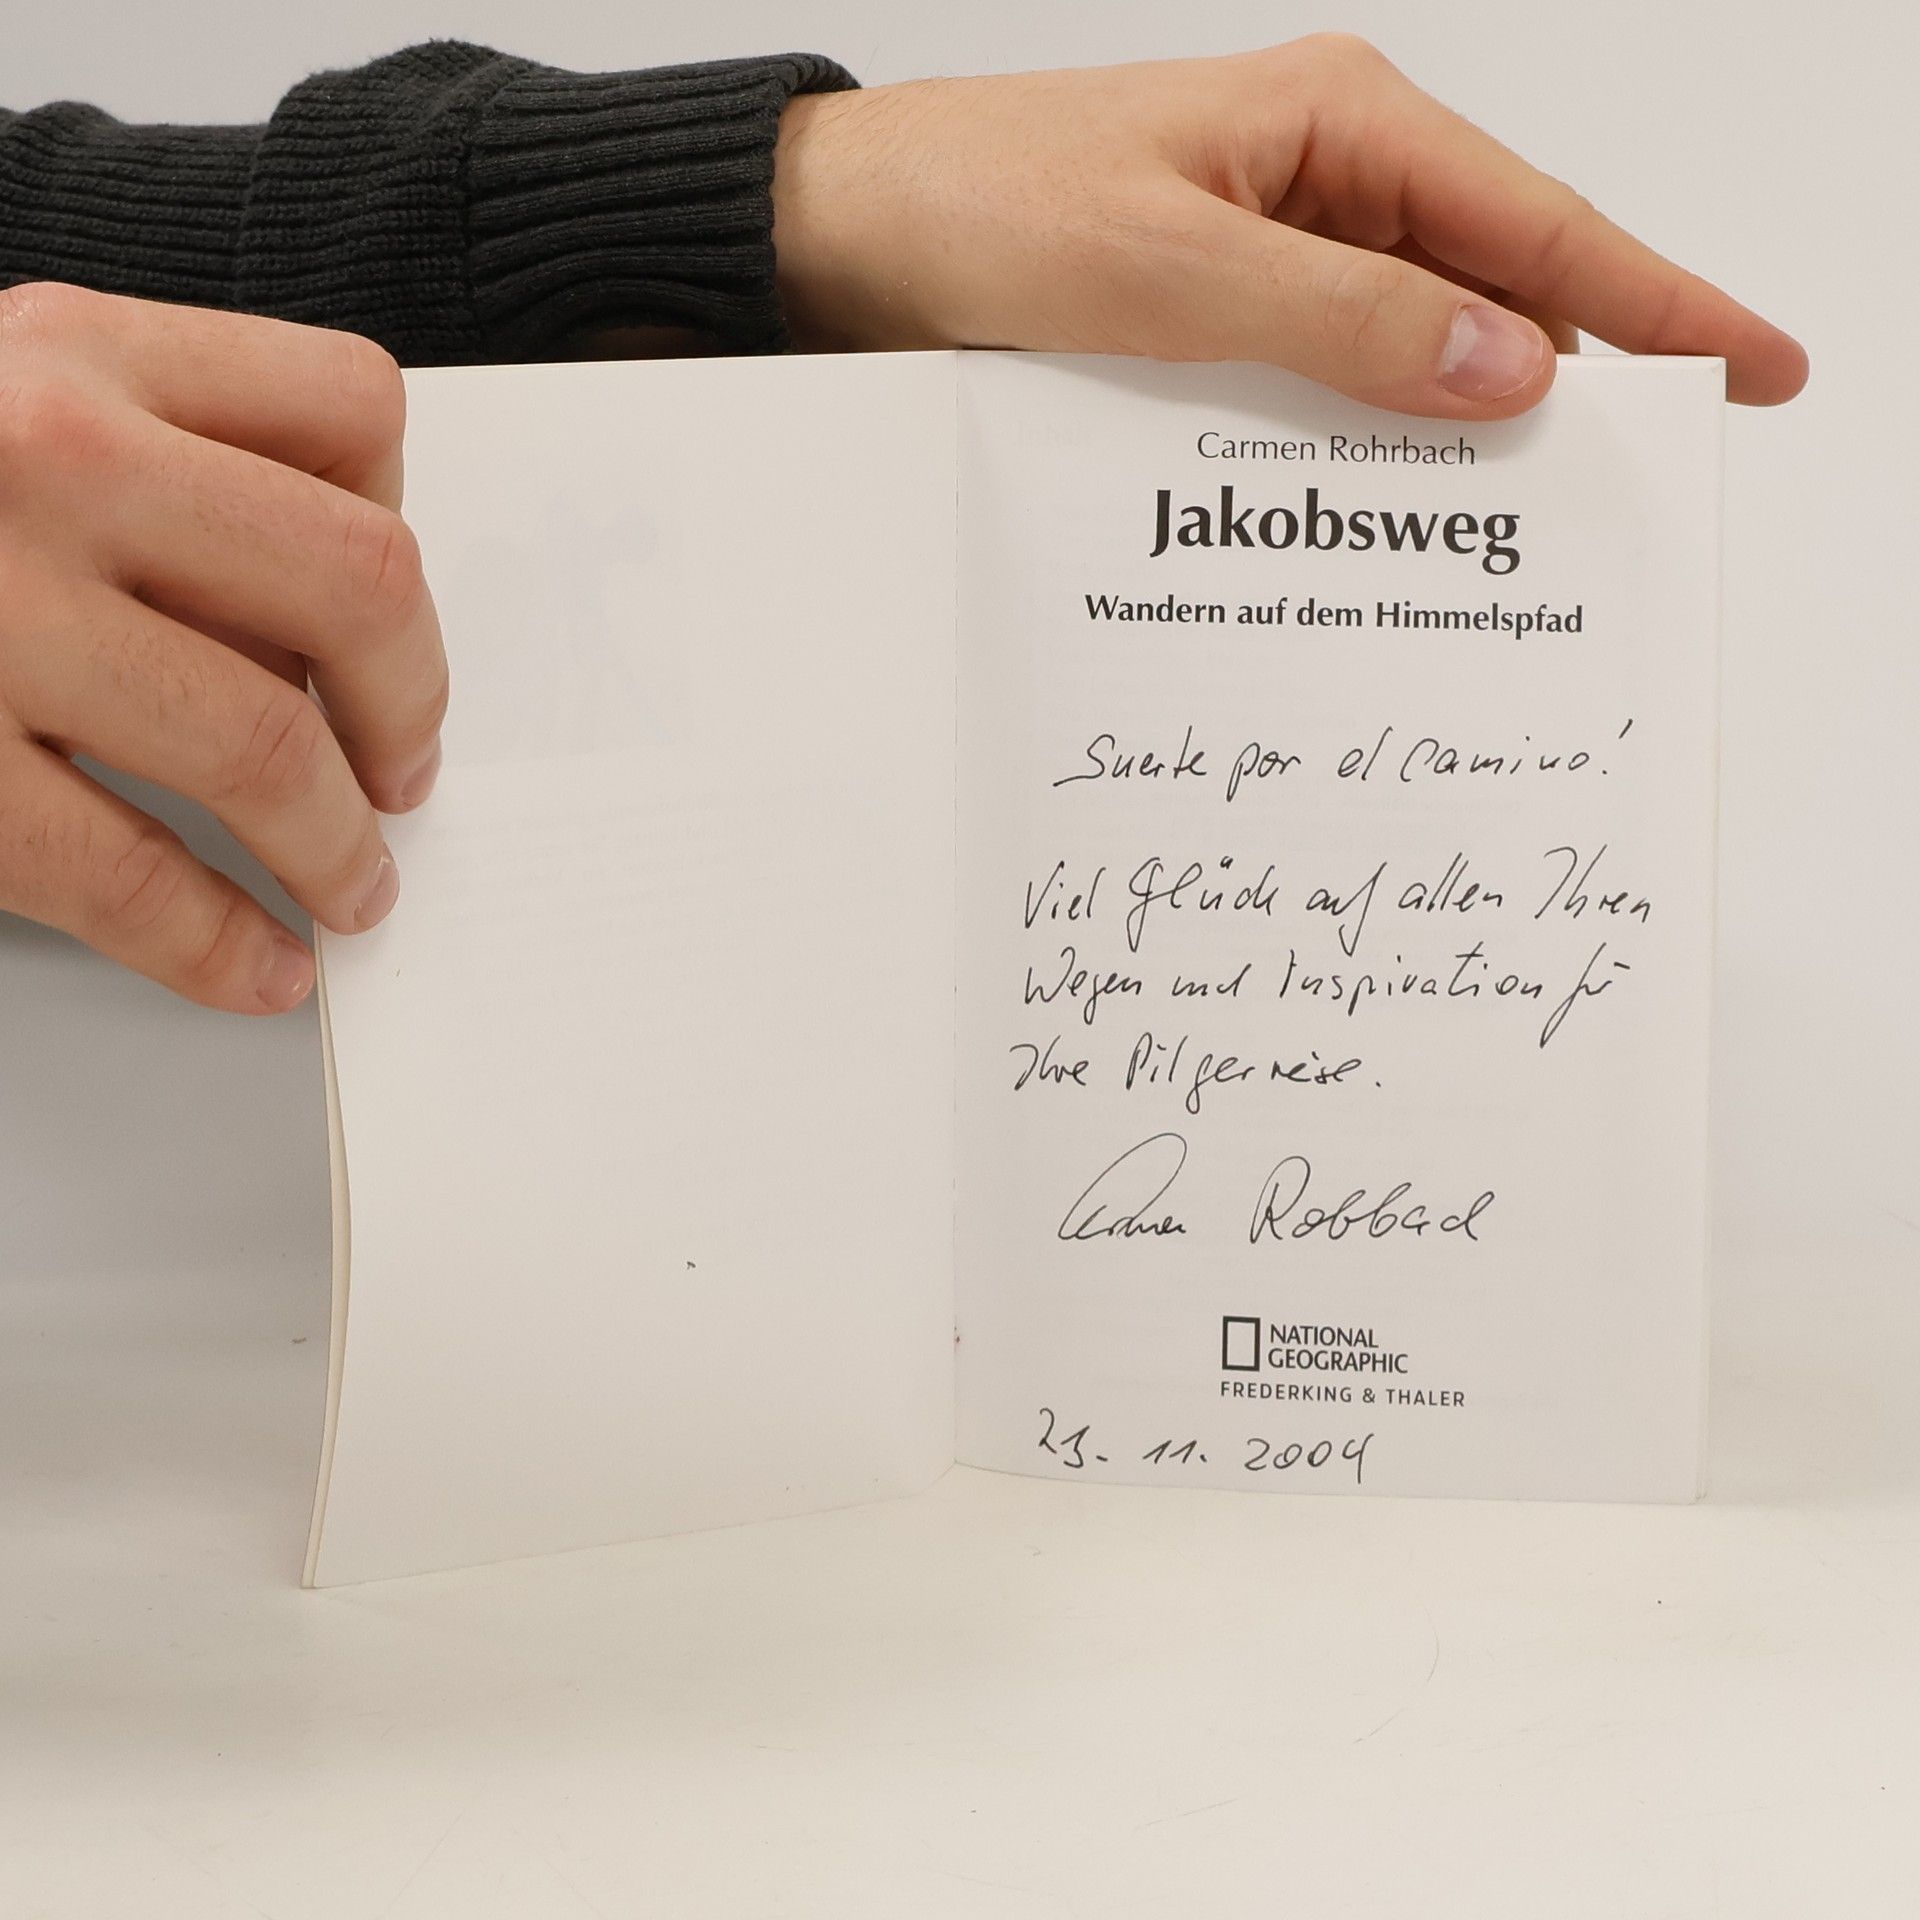 Carmen Rohrbach
Jakobsweg
Wandern auf dem Himmelspfad
Suerte por el Camino!
Viel Glück auf allen Ihren
Wegen und Inspiration für
Ihre Pilgerreise.
Carmen Rohrbach
NATIONAL
GEOGRAPHIC
FREDERKING & THALER
23. 11. 2004